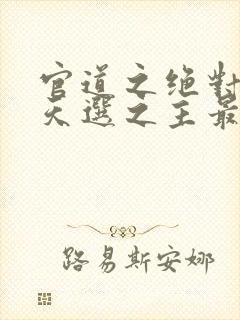 官道之绝对
天选之主最
路易斯安娜